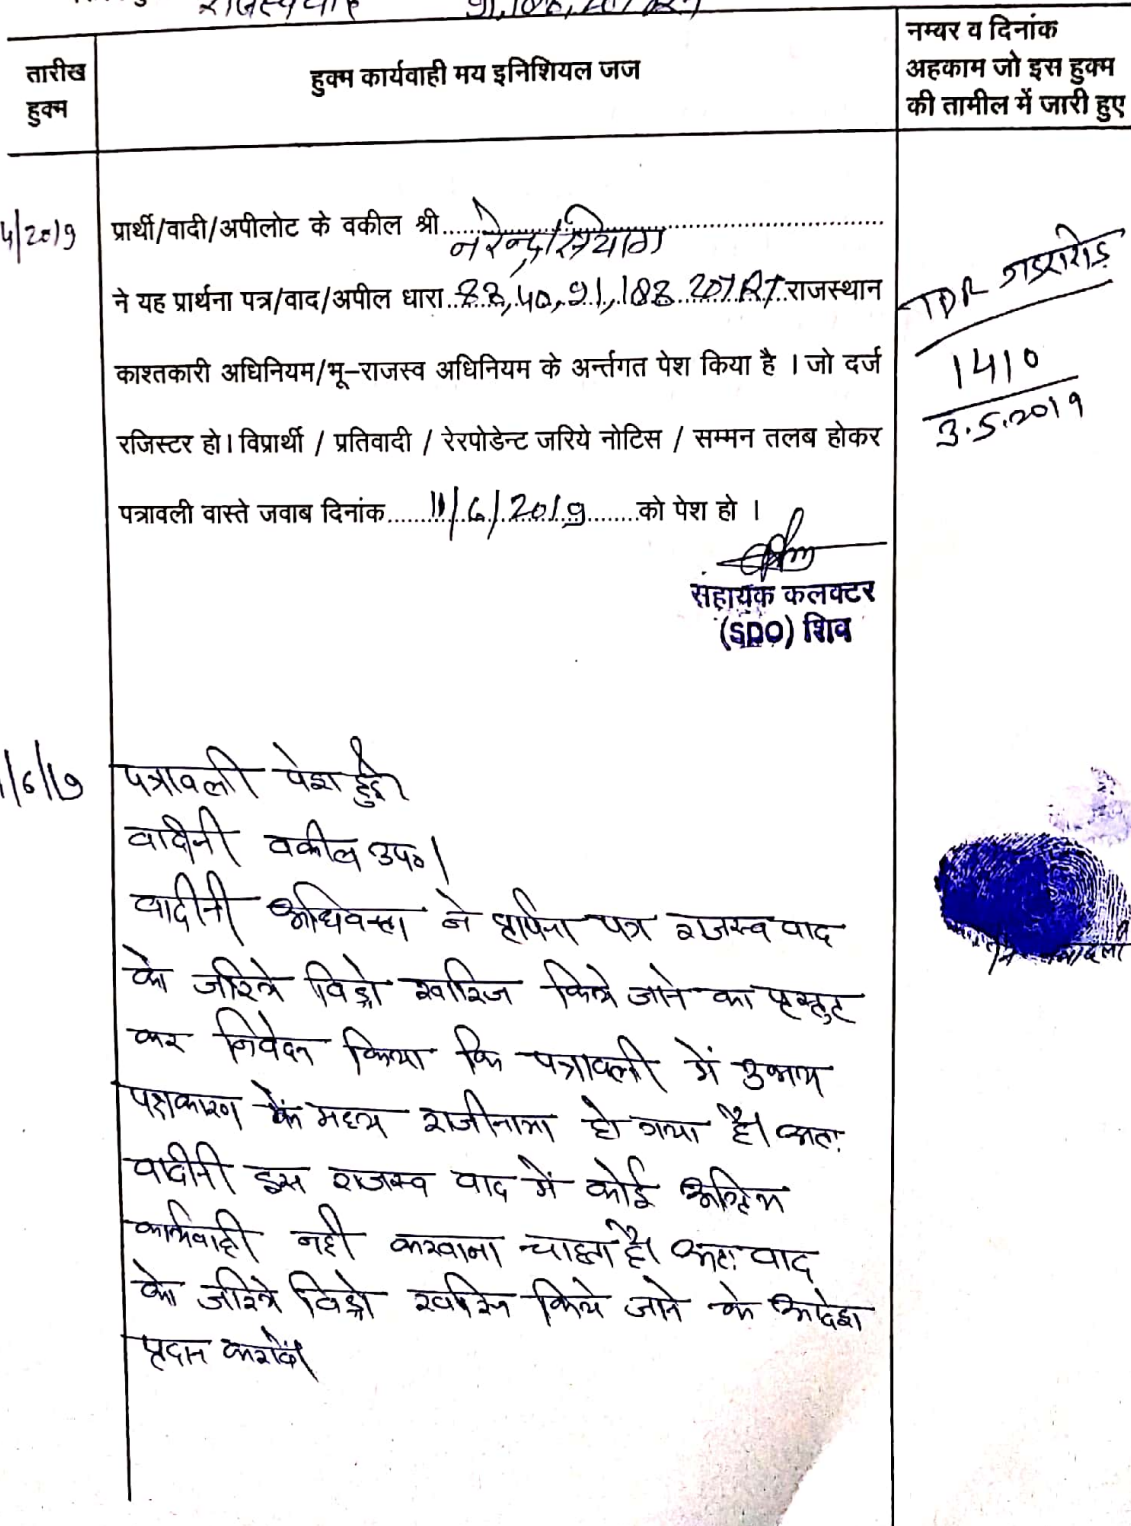 राजस्व वाद
तारीख हुक्म
हुक्म कार्यवाही मय इनिशियल जज
नम्बर व दिनांक
अहकाम जो इस हुक्म
की तामील में जारी हुए
4/2019
प्रार्थी/वादी/अपीलोट के वकील श्री नरेन्द्र सियाग
ने यह प्रार्थना पत्र/वाद/अपील धारा 88, 40, 91, 188 207 RT राजस्थान
काश्तकारी अधिनियम/भू-राजस्व अधिनियम के अर्न्तगत पेश किया है । जो दर्ज
रजिस्टर हो। विप्रार्थी / प्रतिवादी / रेरपोडेन्ट जरिये नोटिस / सम्मन तलब होकर
पत्रावली वास्ते जवाब दिनांक 11/6/2019 को पेश हो ।
TDR गडरारोड़
1410
3.5.2019
सहायक कलक्टर
(SDO) शिव
/6/19
पत्रावली पेश हुई।
वादीनी वकील उप०।
वादीनी अधिवक्ता ने प्रार्थना पत्र राजस्व वाद
को जरिये विड्रो खारिज किये जाने का प्रस्तुत
कर निवेदन किया कि पत्रावली में उभय
पक्षकारान के मध्य राजीनामा हो गया है। अतः
वादीनी इस राजस्व वाद में कोई अग्रिम
कार्यवाही नही करवाना चाहता है। अतः वाद
को जरिये विड्रो खारिज किये जाने के आदेश
प्रदान करावें।